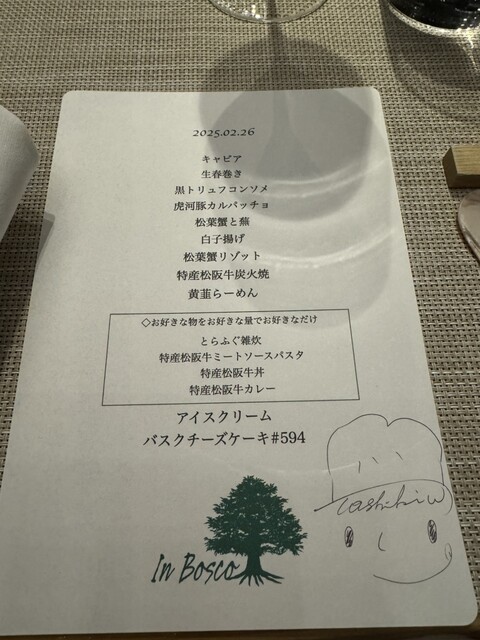 2025.02.26
キャビア
生春巻き
黒トリュフコンソメ
虎河豚カルパッチョ
松葉蟹と蕪
白子揚げ
松葉蟹リゾット
特産松阪牛炭火焼
黄韮らーめん
◇お好きな物をお好きな量でお好きなだけ
とらふぐ雑炊
特産松阪牛ミートソースパスタ
特産松阪牛丼
特産松阪牛カレー
アイスクリーム
バスクチーズケーキ#594
In Bosco